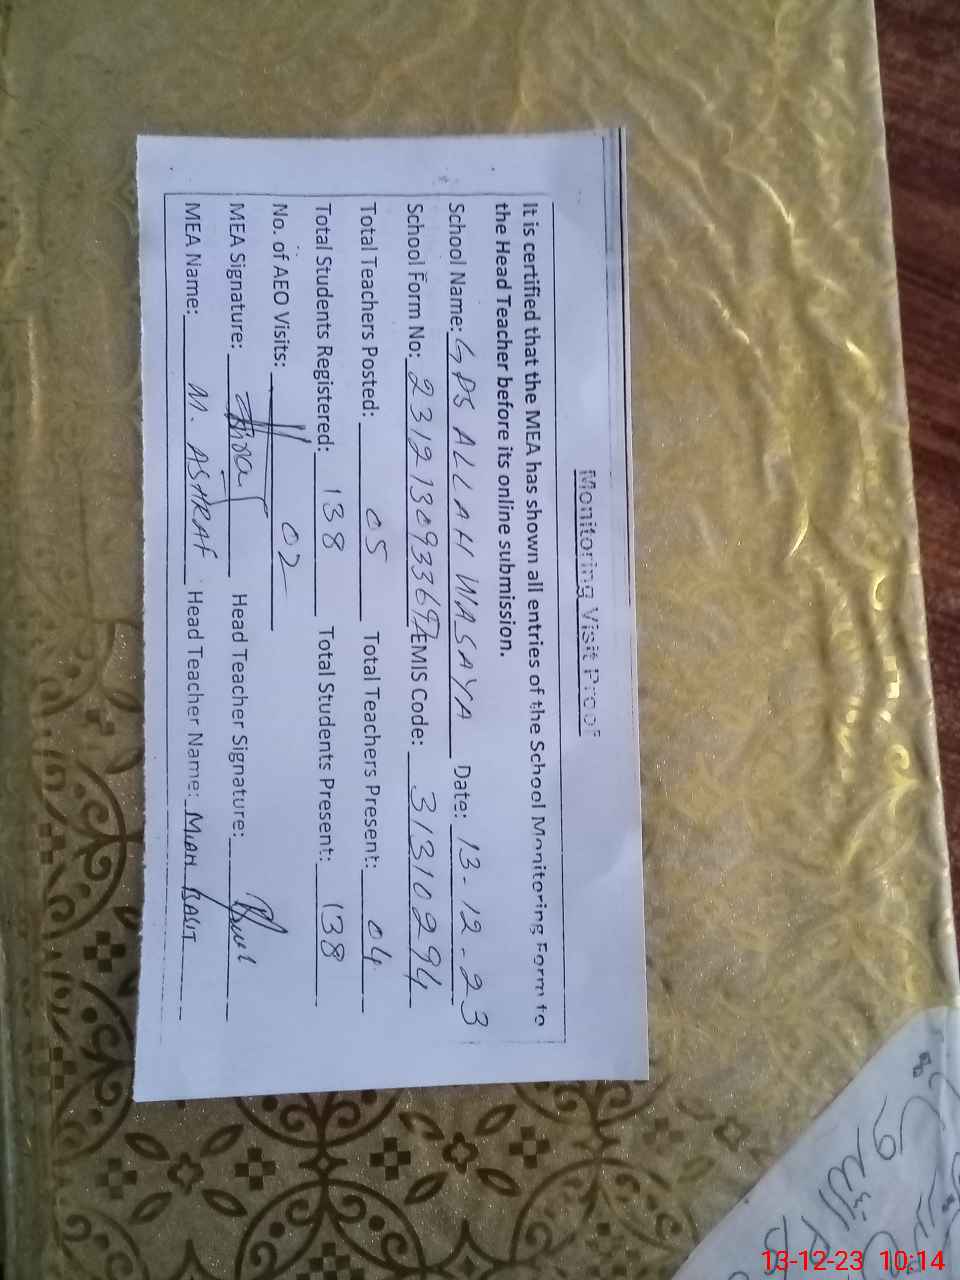 Monitoring Visit Proof
It is certified that the MEA has shown all entries of the School Monitoring Form to
the Head Teacher before its online submission.
School Name: GPS ALLAH WASAYA Date: 13-12-23
School Form No: 231213093369 EMIS Code: 31310294
Total Teachers Posted: 05 Total Teachers Present: 04
Total Students Registered: 138 Total Students Present: 138
No. of AEO Visits: 02
MEA Signature: Head Teacher Signature:
MEA Name: M. ASHRAF Head Teacher Name:
13-12-23 10:14